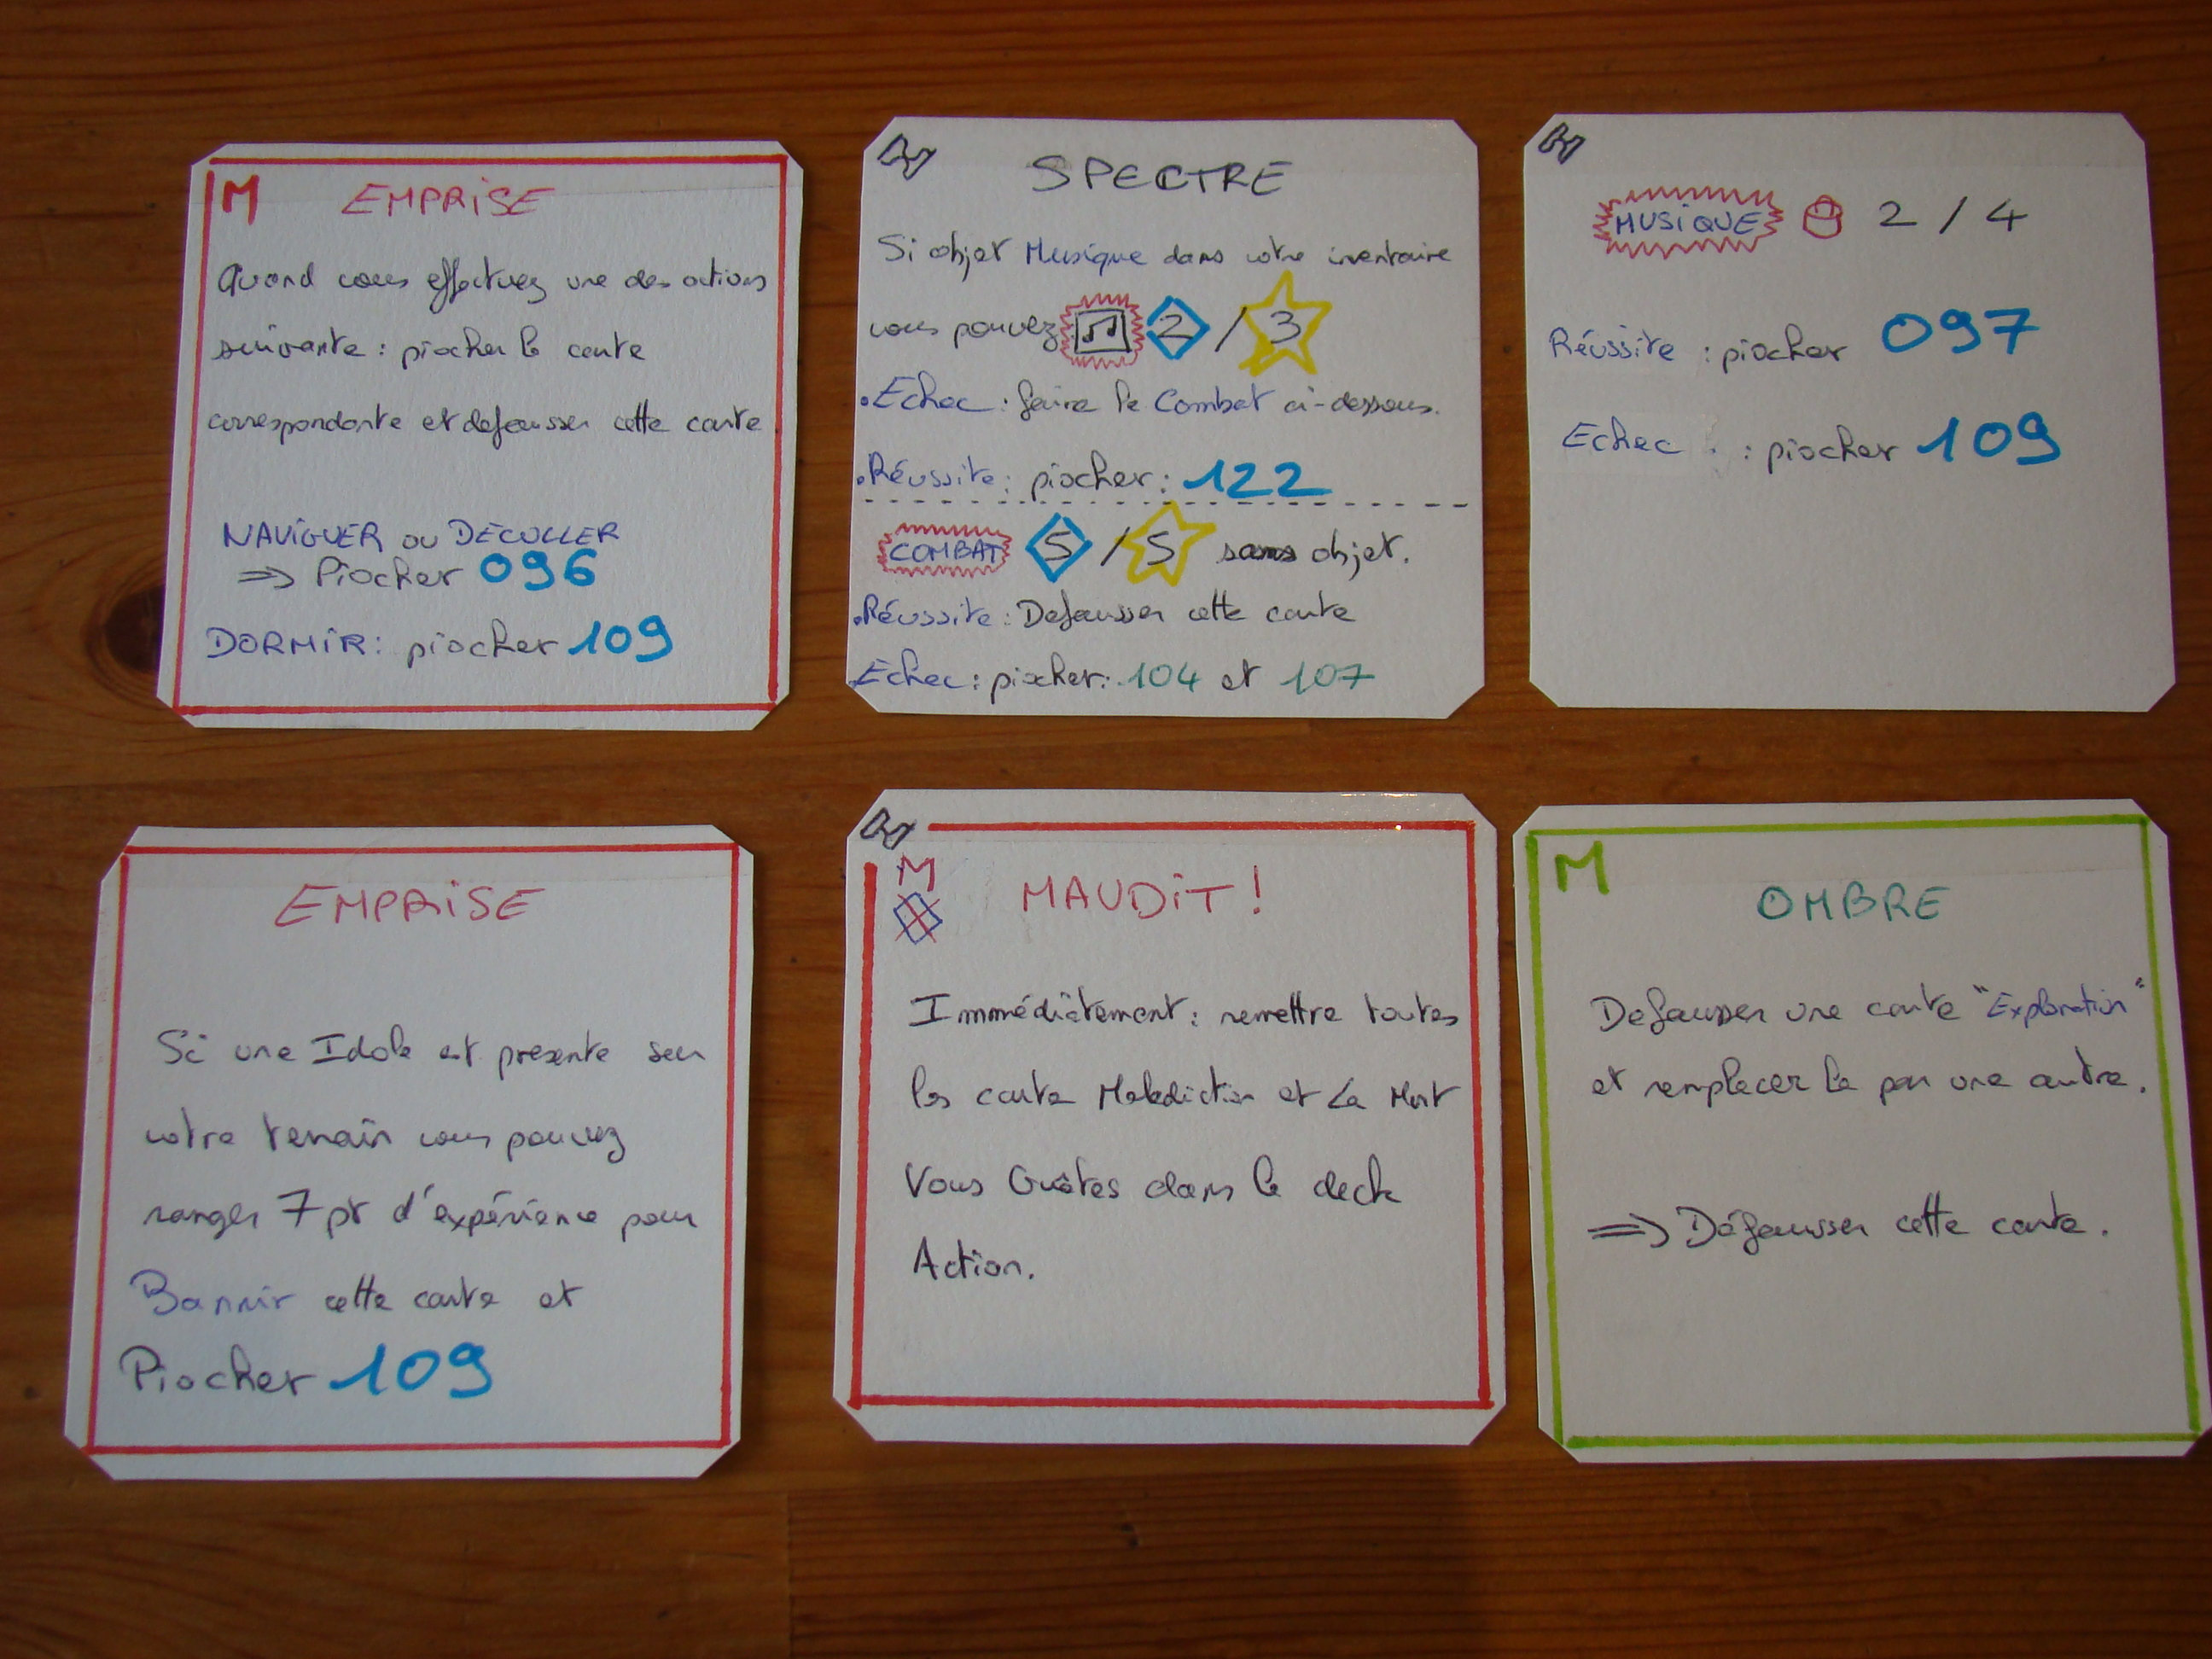 M EMPRISE
Quand vous effectuez une des actions
suivante : piocher la carte
correspondante et defausser cette carte
NAViGUER ou DECOLLER
=> Piocher 096
DORMiR : piocher 109
SPECTRE
Si objet Musique dans votre inventaire
vous pouvez 2 / 3
.Echec : faire le Combat ci-dessous.
.Réussite : piocher : 122
COMBAT 5 / 5 sans objet.
.Réussite : Defausser cette carte
.Echec : piocher : 104 et 107
MUSiQUE 2 / 4
Réussite : piocher 097
Echec : piocher 109
EMPRiSE
Si une Idole est presente sur
votre terrain vous pouvez
ranger 7 pt d'expérience pour
Bannir cette carte et
Piocher 109
M MAUDiT !
Immédiatement : remettre toutes
les carte Malediction et La Mort
Vous Guêtes dans le deck
Action.
M
OMBRE
Defausser une carte "Exploration"
et remplacer la par une autre.
=> Défausser cette carte.